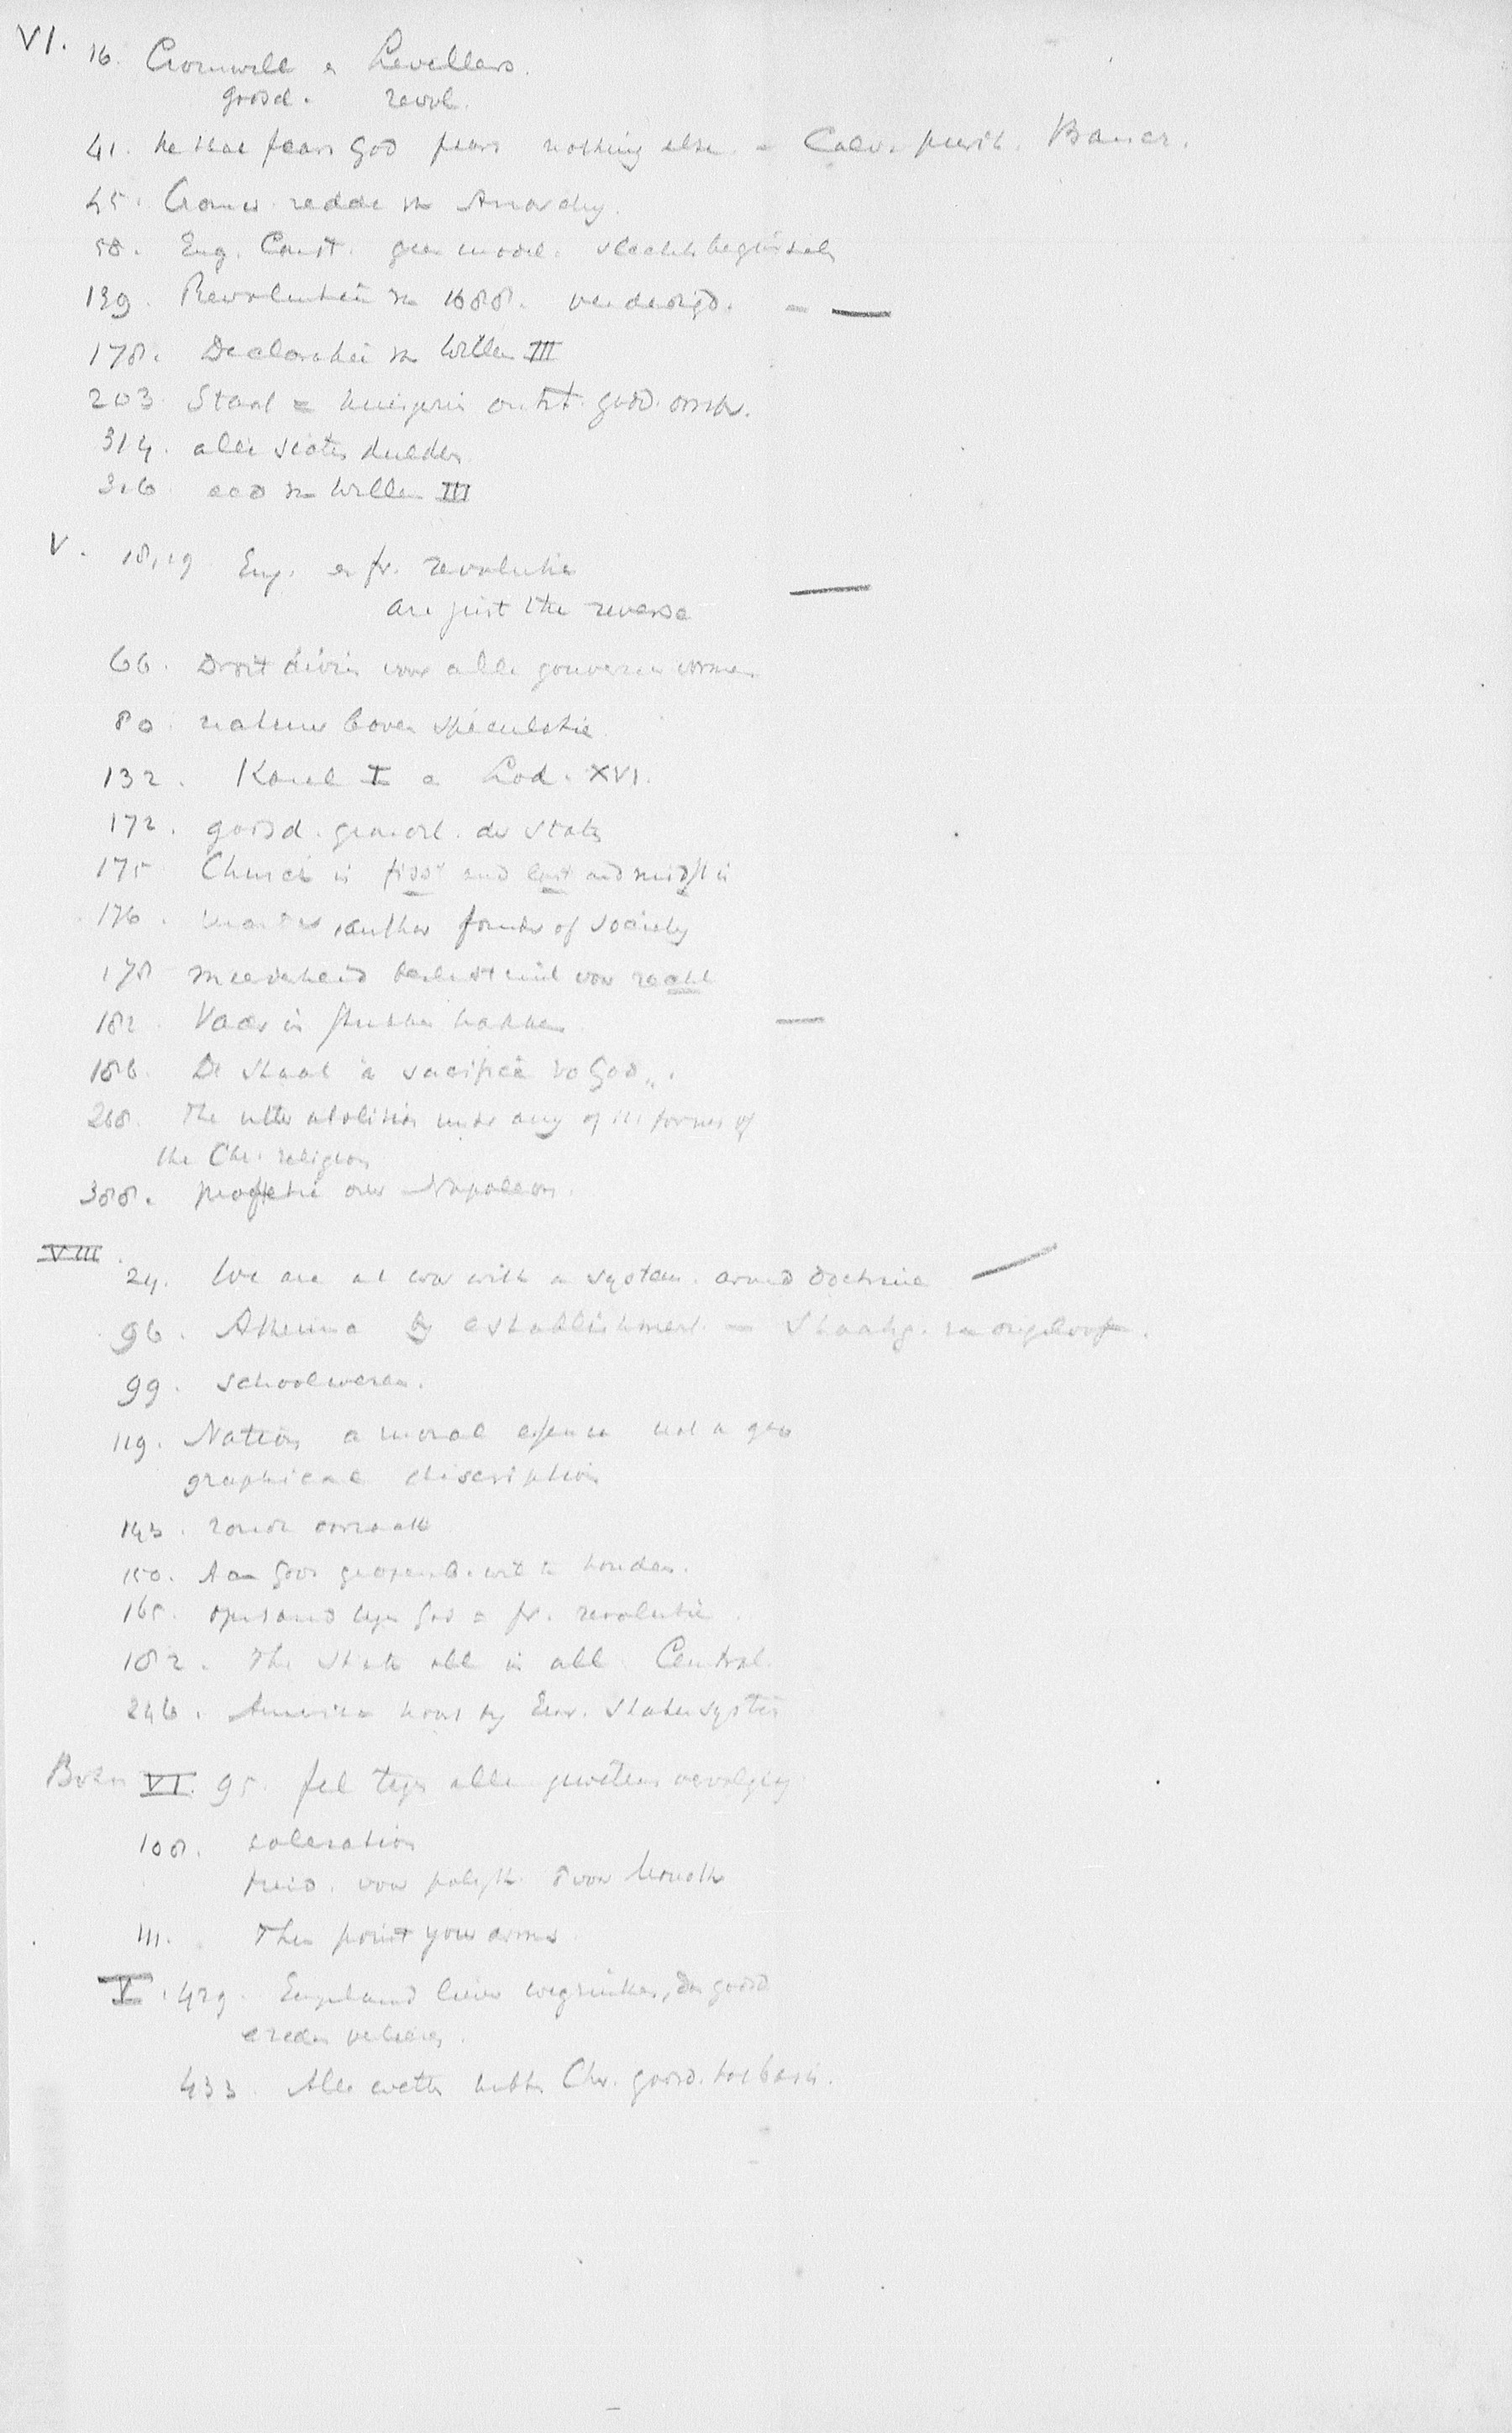 VI. 16. Cromwell & Levellers.
godsd. revol.
41. he that fears God fears nothing else. = Calv. purit. Bancr.
45. Cromw. redde van Anarchy.
58. Eng. Const. geen model. slechts beginselen
139. Revolutie van 1688. verdedigd. — —
178. Declaratie van Willem III
203. Staat = huisgezin godd. oorspr.
314. alle secten dulden
316 eed van Willem III
V. 18, 19 Eng. en fr. revolutie
are just the reverse —
66. Droit divin voor alle gouvernem. vormen
80. natuur boven speculatie
132. Karel I en Lod. XVI.
172. godsd. der Staten
175 Church is first and last and midst in
176. author founder of society
178 meerderheid beslist niet voor recht
182. Vader in stukken hakken —
186. De Staat "a sacrifice to God".
268. The utter abolition under any of its forms of
the Chr. religion
388. profetie over Napoleon.
VIII. 24. We are at war with a system. armed doctrine —
96. Atheism by establishment = Staatsg. van ongeloof.
99. Schoolwezen.
119. Nation a moral essence not a geo
graphical description
143. oorzaak
150. Aan God te houden.
165. opstand tegen God = fr. revolutie
182. The State all in all. Central.
246. America Eur. Statensysteem
Bohn VI. 95. fel tegen alle gewetens vervolging
108. toleration
voor polyth. voor monoth
111. Then point your arms
V. 429. Engeland liever wegzinken, dan godsd
vrede verliezen.
433. Alle wetten hebben Chr. godsd. tot basis.